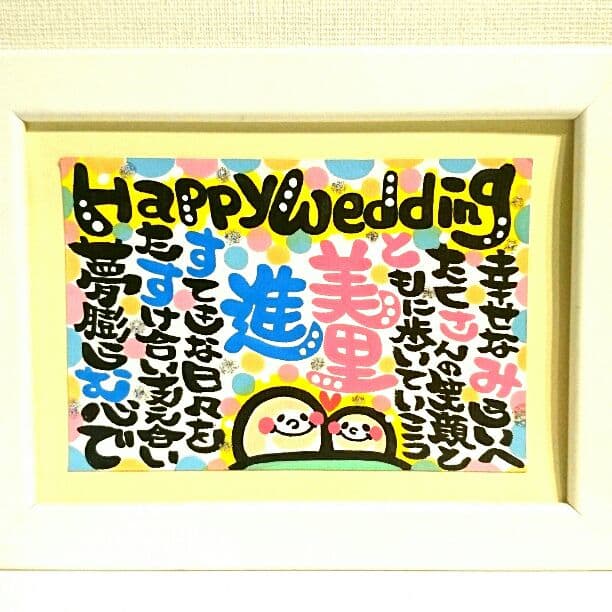 HappyWedding
幸せなみらいへ
たくさんの笑顔と
ともに歩いていこう
美里
進
すてきな日々を
たすけ合い支え合い
夢膨らむ心で